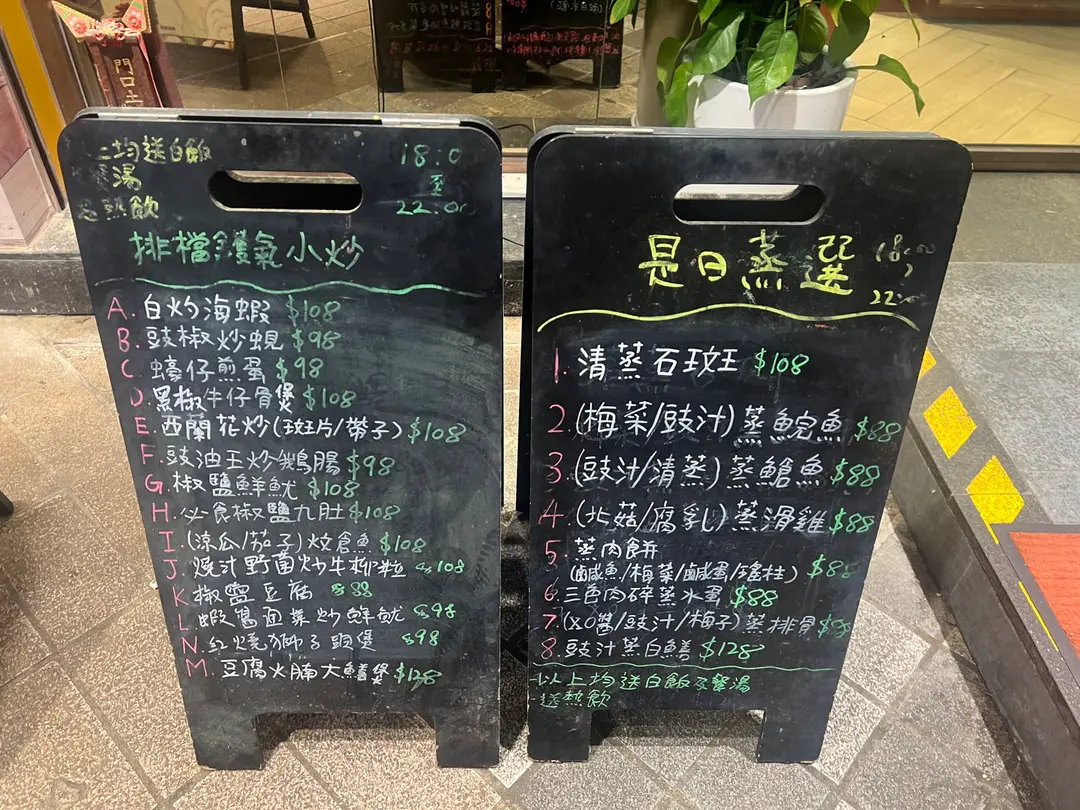 門口土
上均送白飯
湯
送熱飲
18:0
至
22:00
排檔鑊氣小炒
A. 白灼海蝦 $108
B. 豉椒炒蜆 $98
C. 蠔仔煎蛋 $98
D. 黑椒牛仔骨煲 $108
E. 西蘭花炒(斑片/帶子) $108
F. 豉油王炒鵝腸 $98
G. 椒鹽鮮魷 $108
H. 必食椒鹽九肚 $108
I. (涼瓜/茄子)炆倉魚 $108
J. 燒汁野菌炒牛柳粒 $108
K. 椒鹽豆腐 $88
L. 蝦醬通菜炒鮮魷 $98
N. 紅燒獅子頭煲 $98
M. 豆腐火腩大鱔煲 $128
是日蒸選
18:00
22:00
1. 清蒸石斑 $108
2. (梅菜/豉汁)蒸鯇魚 $88
3. (豉汁/清蒸)蒸鱠魚 $88
4. (北菇/腐乳)蒸滑雞 $88
5. 蒸肉餅
(鹹魚/梅菜/鹹蛋/瑤柱) $88
6. 三色肉碎蒸水蛋 $88
7. (XO醬/豉汁/梅子)蒸排骨 $98
8. 豉汁蒸白鱔 $128
以上均送白飯及餐湯
送熱飲